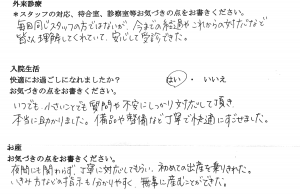 外来診療
*スタッフの対応、待合室、診察室等お気づきの点をお書きください。
毎回同じスタッフの方ではないが、今までの経過やこれからの対応など
皆さん理解してくれていて、安心して受診できた。
入院生活
快適にお過ごしになれましたか？ はい・いいえ
お気づきの点をお書きください。
いつでも小さいことでも質問や不安にしっかり対応して頂き
本当に助かりました。備品や整備など丁寧で快適にすごせました。
お産
お気づきの点をお書きください。
夜間にも関わらず丁寧に対応してもらい、初めての出産を乗りきれた。
いきみ方などの指示も分かりやすく、無事に産むことができた。